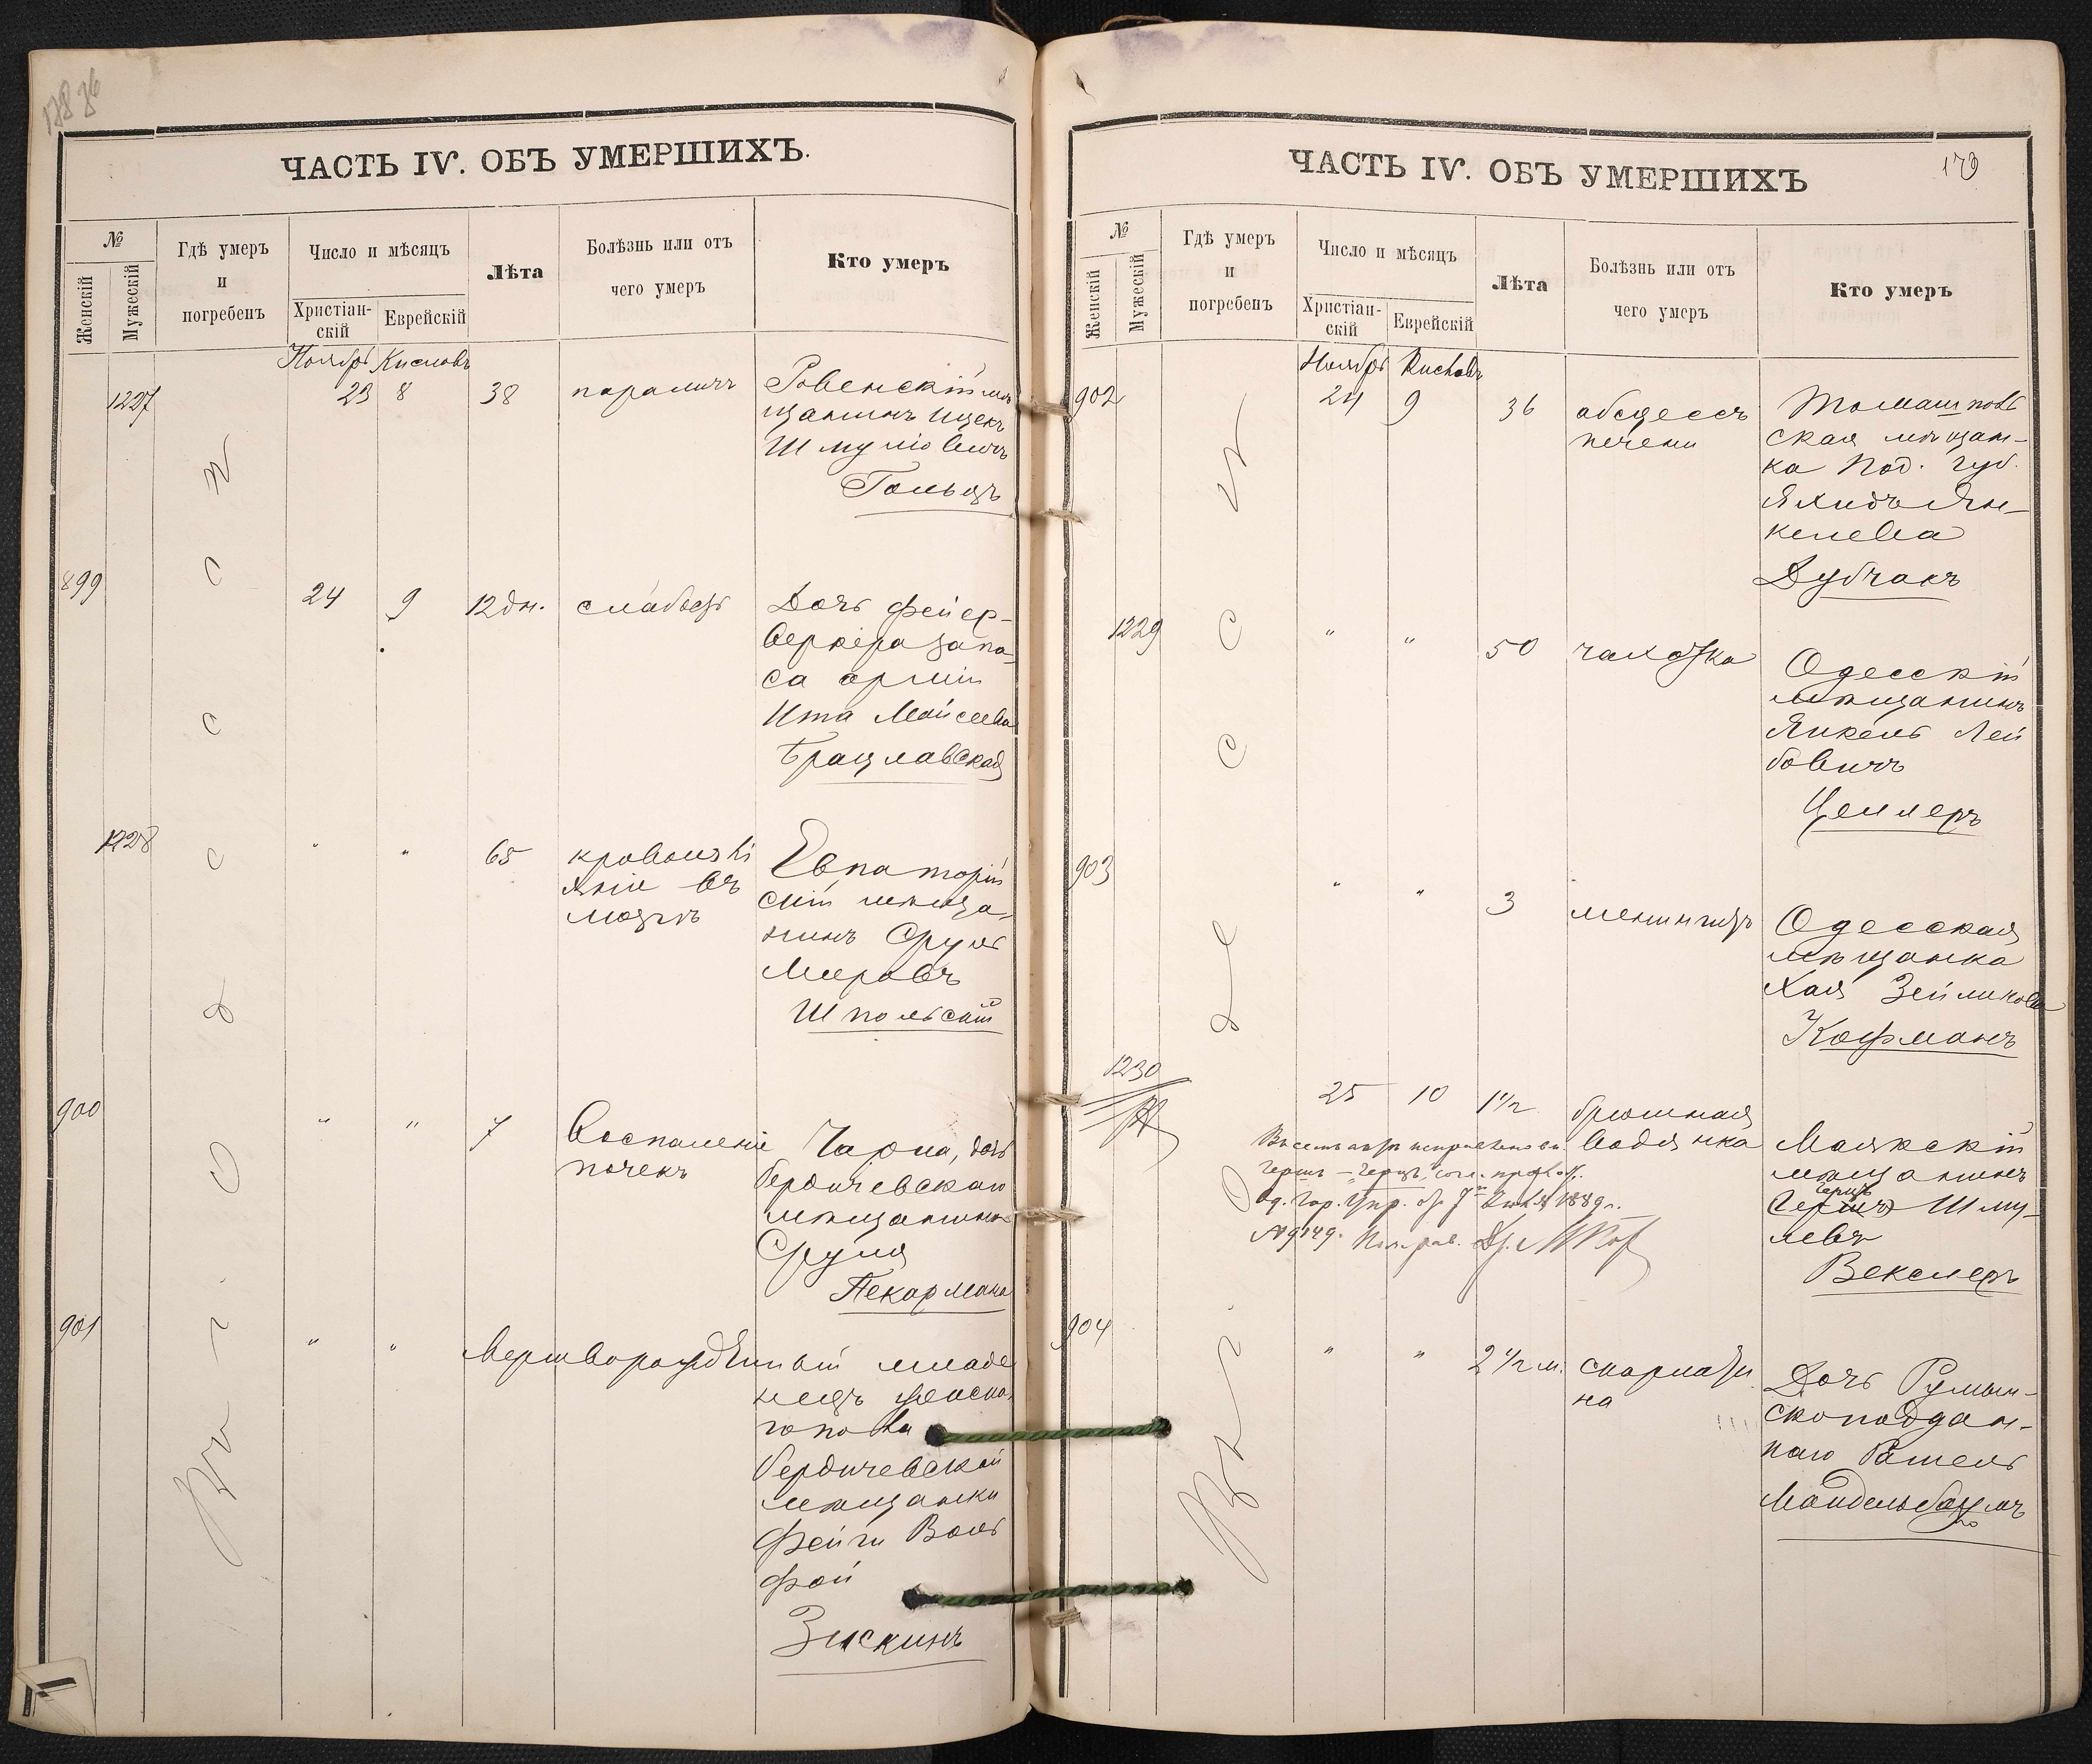 ЧАСТЬ IV. ОБЪ УМЕРШИХЪ.
№
Женскій
Мужескій
Гдѣ умеръ
и
погребенъ
Число и мѣсяцъ
Христіан-
скій
Еврейскій
Лѣта
Болѣзнь или отъ
чего умеръ
Кто умеръ
Ноябрь Кислевъ
1227 23 8 38 параличъ Ровенскій мѣ
щанинъ Ицекъ
Шмуліовичъ
Гольцъ
899 24 9 12 дн. слабость Дочь фейер-
веркера запа-
са арміи
Ита Мойсеева
Брацлавская
1228 " " 65 кровоизлі
яніе въ
мозгъ
Евпаторій
скій мѣща-
нинъ Сруль
Меровъ
Шпольскій
900 " " 7 Воспаленіе
почекъ
Чарна, дочь
бердичевскаго
мѣщанина
Сруля
Пекармана
901 " " Мертворожденный младе
нецъ женска-
го пола
бердичевской
мѣщанки
Фейги Воль
фой
Зискинъ
ЧАСТЬ IV. ОБЪ УМЕРШИХЪ
179
№
Женскій
Мужескій
Гдѣ умеръ
и
погребенъ
Число и мѣсяцъ
Христіан-
скій
Еврейскій
Лѣта
Болѣзнь или отъ
чего умеръ
Кто умеръ
Ноябрь Кислевъ
902 24 9 36 абсцессъ
печени
Томашполь
ская мѣщан-
ка Под. губ.
Яхидъ Ян-
келева
Дубчакъ
1229 " " 50 чахотка Одесскій
мѣщанинъ
Янкель Лей
бовичъ
Целлеръ
903 " " 3 менингитъ Одесская
мѣщанка
Хая Зейликова
Кофманъ
1230 25 10 1½ брюшная
водянка
Маякскій
мѣщанинъ
Герцъ
Гершъ Шму-
левъ
Векслеръ
Од. Гор. Упр.
1889 г.
№ 9149.
904 " " 2½ м. скарлати
на
Дочь Румын-
скоподдан-
наго Рашель
Мандельбаумъ
Одесса
Одесса